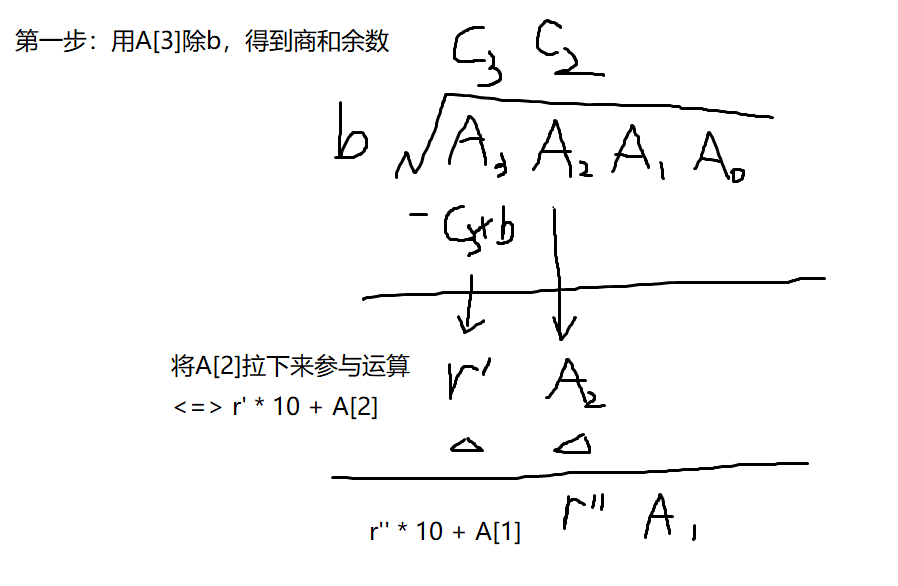 第一步：用A[3]除b，得到商和余数
C3 C2
b A3 A2 A1 A0
- C3*b
将A[2]拉下来参与运算
<=> r' * 10 + A[2]
r' A2
r'' A1
r'' * 10 + A[1]